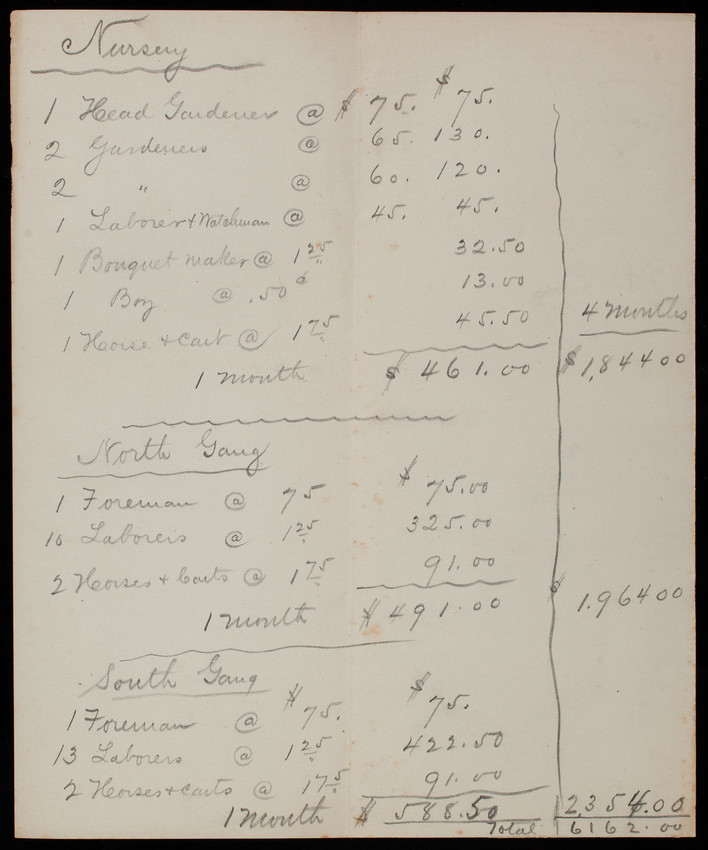 Nursery
1 Head Gardener @ $ 75. $ 75.
2 Gardeners @ 65. 130.
2 " @ 60. 120.
1 Laborer & Watchman @ 45. 45.
1 Bouquet maker @ 1 25 32.50
1 Boy @ .50 ¢ 13.00
1 Horse & Cart @ 1 75 45.50 4 months
1 month $ 461.00 $ 1,844 00
North Gang
1 Foreman @ 75 $ 75.00
10 Laborers @ 1 25 325.00
2 Horses & Carts @ 1 75 91.00
1 month $ 491.00 $ 1.964 00
South Gang
1 Foreman @ $ 75. $ 75.
13 Laborers @ 1 25 422.50
2 Horses & carts @ 1 75 91.00
1 month $ 588.50 2,354.00
Total 6162.00